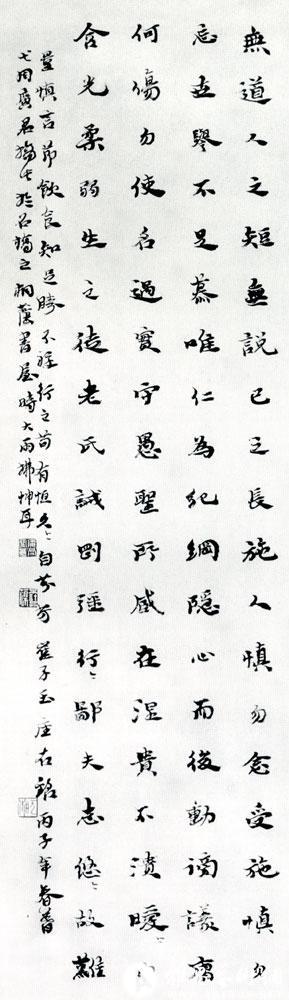 無道人之矩無説己之長施人慎勿念受施慎勿
忘世譽不足慕唯仁為紀綱隱心而後動謗議庸
何傷勿使名過實守愚聖所臧在涅貴不漬曖〻內
含光柔弱生之徒老氏誡剛彊行〻鄙夫志悠〻故難
量慎言節飲食知足勝不祥行之苟有恒久〻自芬芳崔子玉座右銘丙子年春暮
之桐蔭書屋時大雨